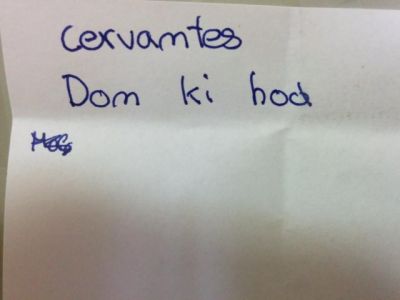 Cervamtes
Dom ki hod